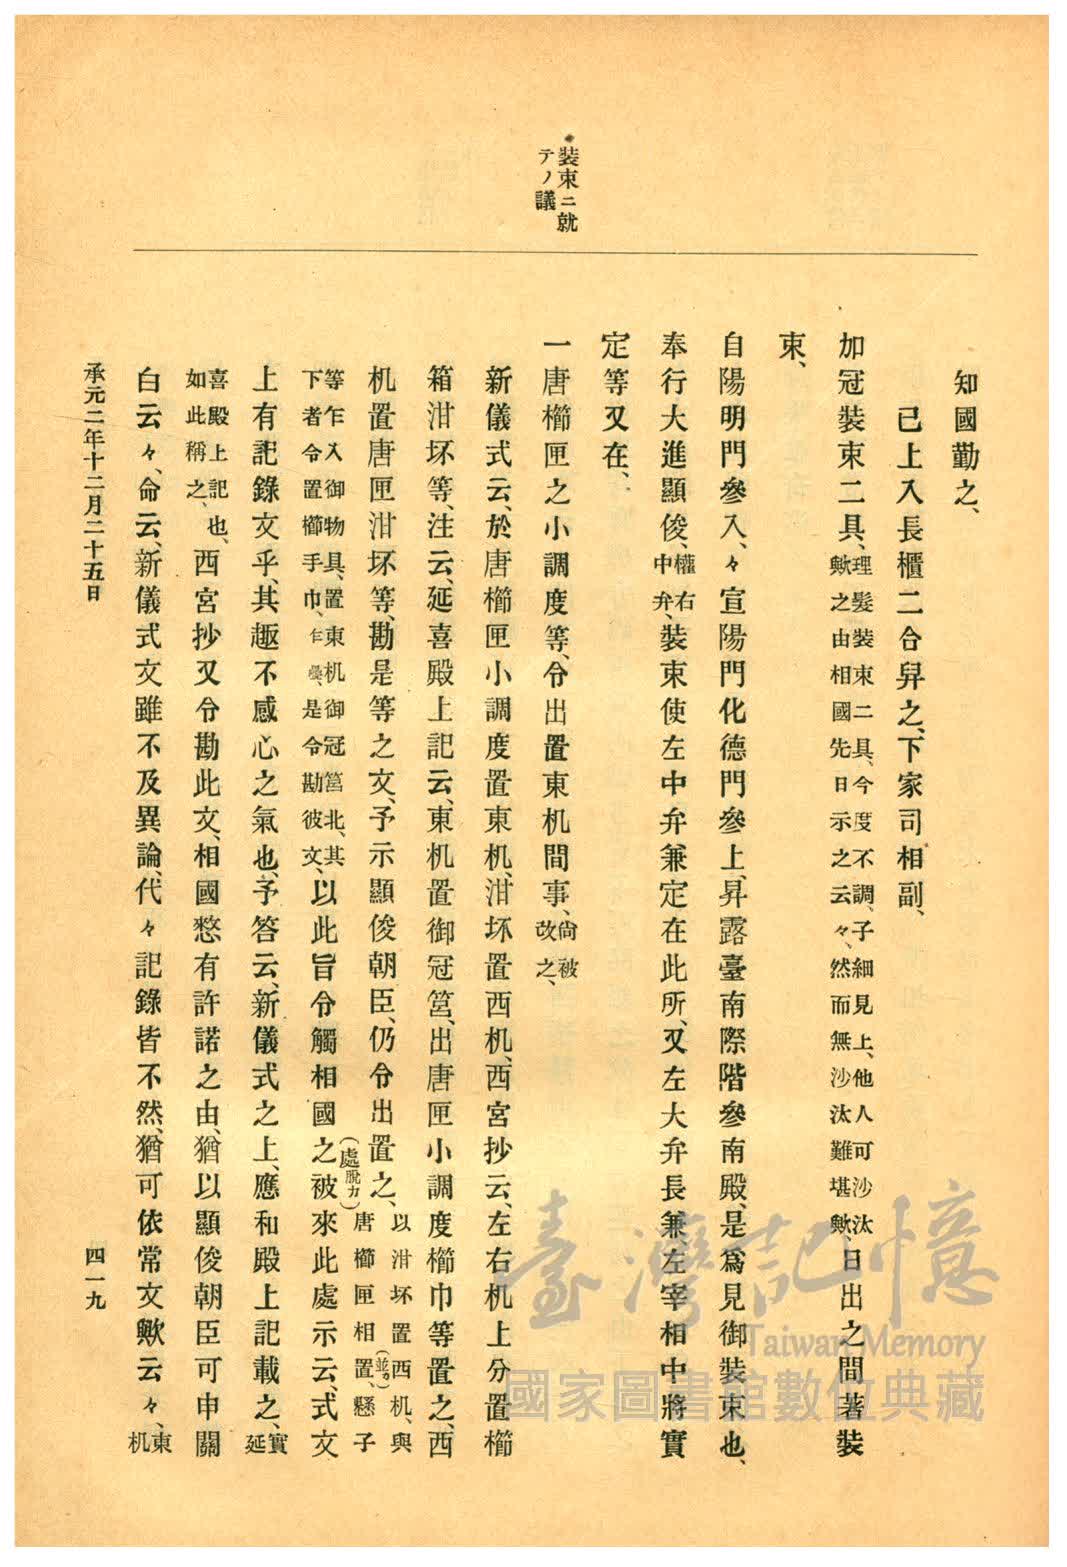 装束ニ就
テノ議
知國勤之、
已上入長櫃二合舁之、下家司相副、
加冠装束二具、理髮装束二具、今度不調、子細見上、他人可沙汰
歟之由相國先日示之云々、然而無沙汰難堪歟、日出之間著装
束、
自陽明門參入、々宣陽門化德門參上、昇露臺南際階參南殿、是爲見御装束也、
奉行大進顯俊、權右
中弁、装束使左中弁兼定在此所、又左大弁長兼、左宰相中將實
定等又在、
一唐櫛匣之小調度等、令出置東机間事、尙被
改之、
新儀式云、於唐櫛匣小調度置東机、泔坏置西机、西宮抄云、左右机上分置櫛
箱泔坏等、注云、延喜殿上記云、東机置御冠筥、出唐匣小調度櫛巾等置之、西
机置唐匣泔坏等、勘是等之文、予示顯俊朝臣、仍令出置之、以泔坏置西机、與
唐櫛匣相置、懸子
(並カ)
等乍入御物具、置東机御冠筥北、其
下者令置櫛手巾、乍疊、是令勘彼文、以此旨令觸相國之被來此處示云、式文
(處脫カ)
上有記錄文乎、其趣不感心之氣也、予答云、新儀式之上、應和殿上記載之、實
延
喜殿上記也、
如此稱之、西宮抄又令勘此文、相國憗有許諾之由、猶以顯俊朝臣可申關
白云々、命云、新儀式文雖不及異論、代々記錄皆不然、猶可依常文歟云々、東
机
承元二年十二月二十五日
四一九
臺灣記憶
Taiwan Memory
國家圖書館數位典藏